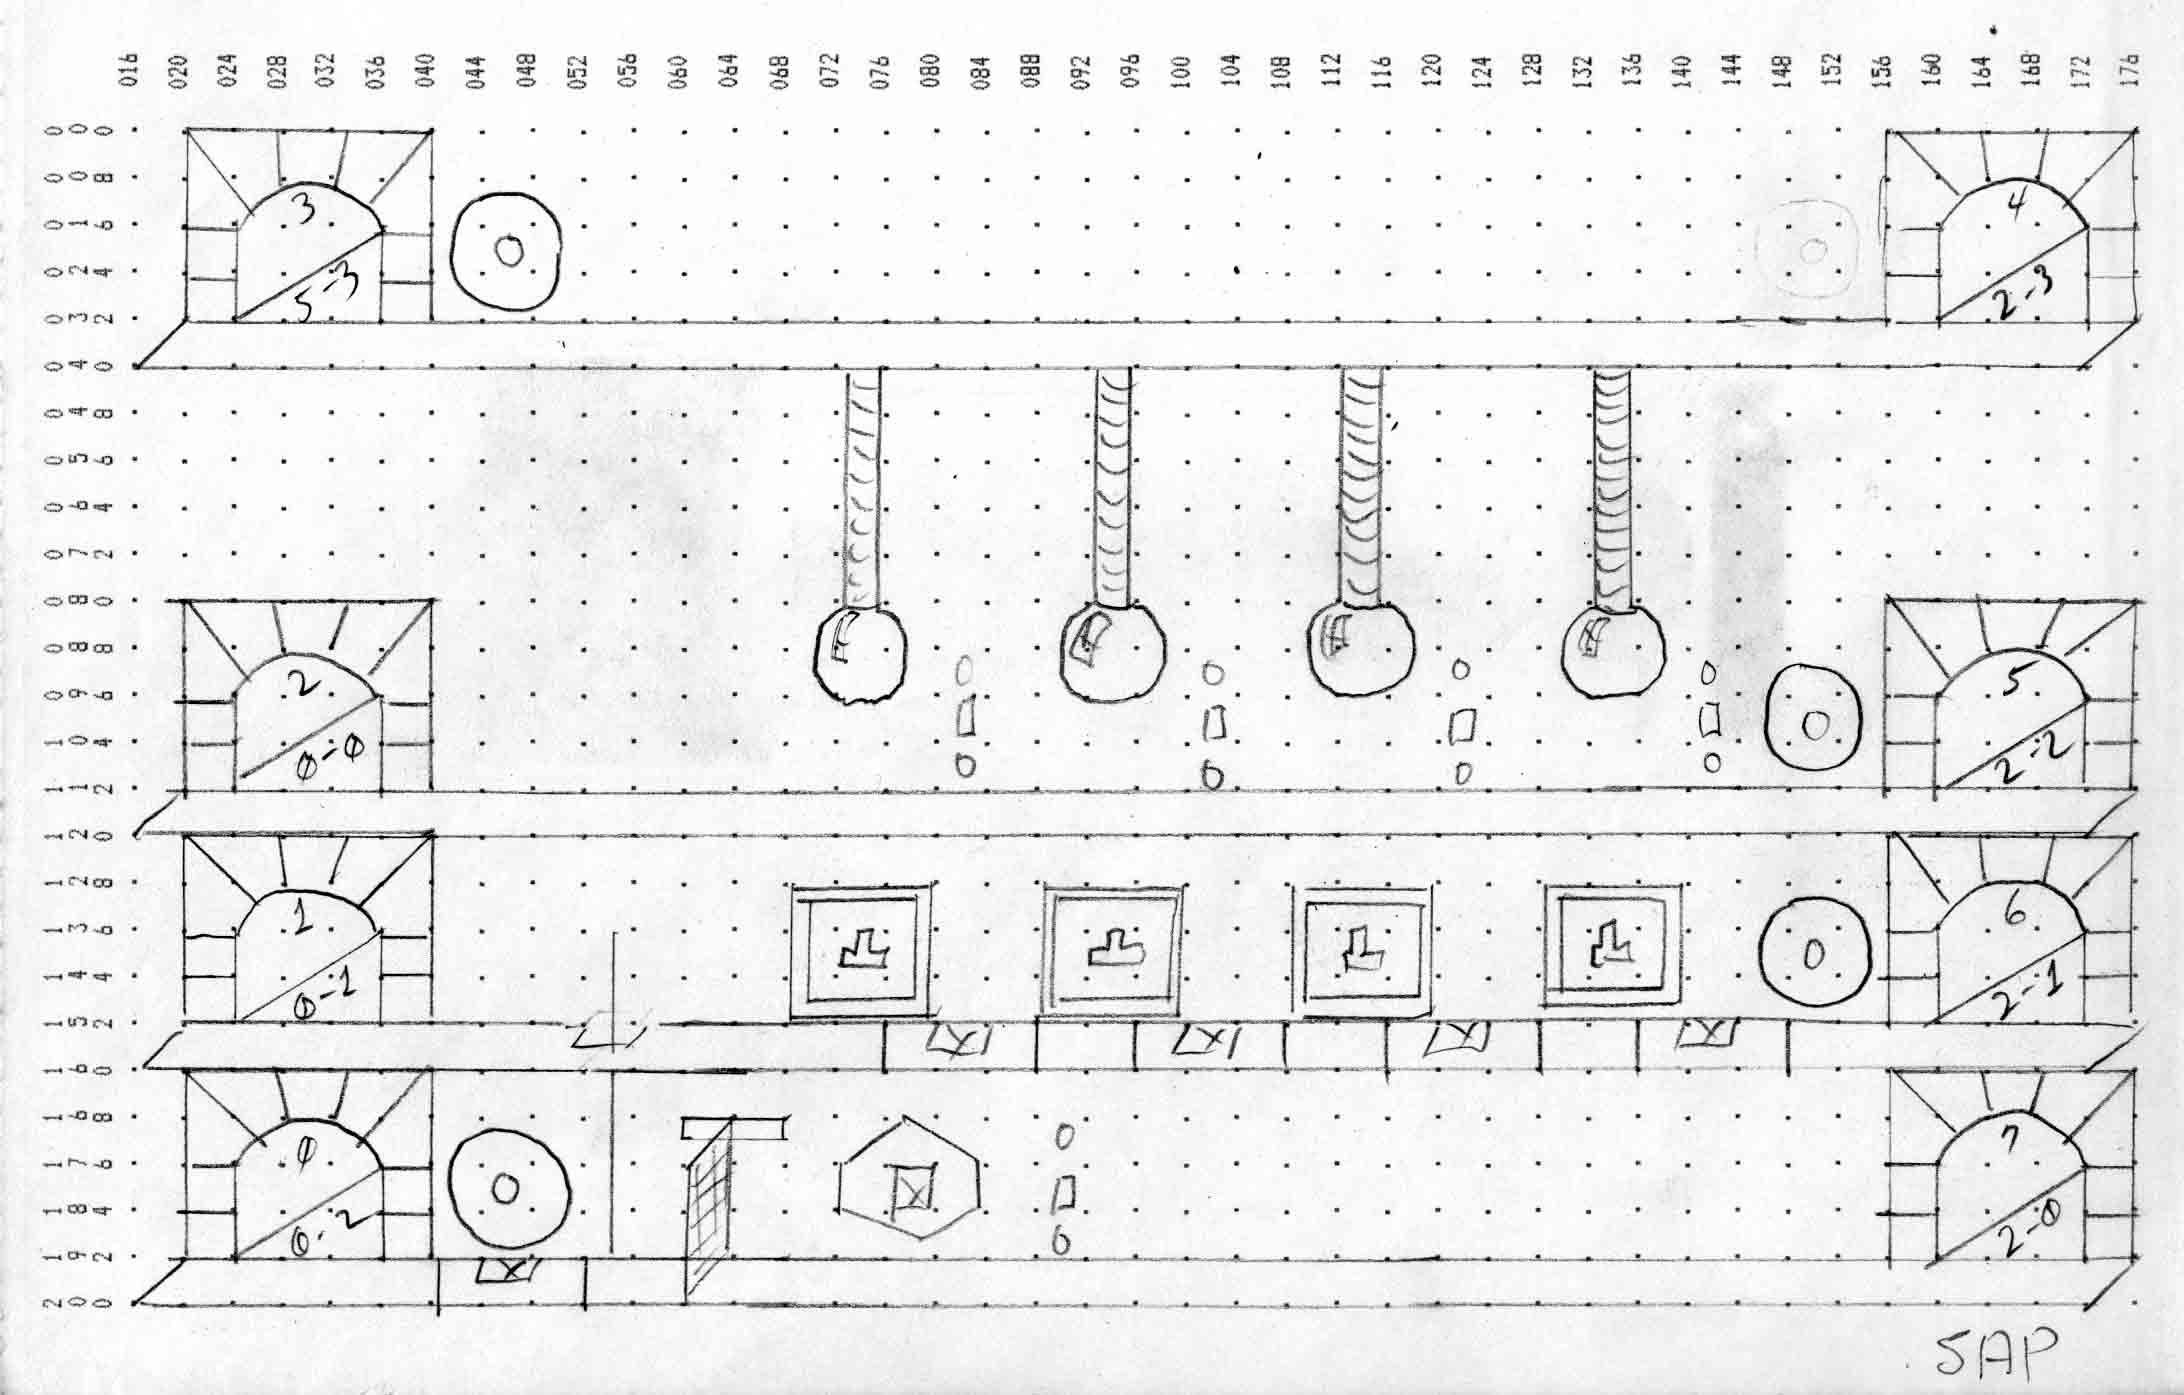 016 020 024 028 032 036 040 044 048 052 056 060 064 068 072 076 080 084 088 092 096 100 104 108 112 116 120 124 128 132 136 140 144 148 152 156 160 164 168 172 176
000
008
016
3 4
024
5-3 2-3
032
040
048
056
064
072
080
088
2 5
096
104
0-0 2-2
112
120
128
1 6
136
144
0-1 2-1
152
160
168
0 7
176
184
0-2 2-0
192
200
SAP